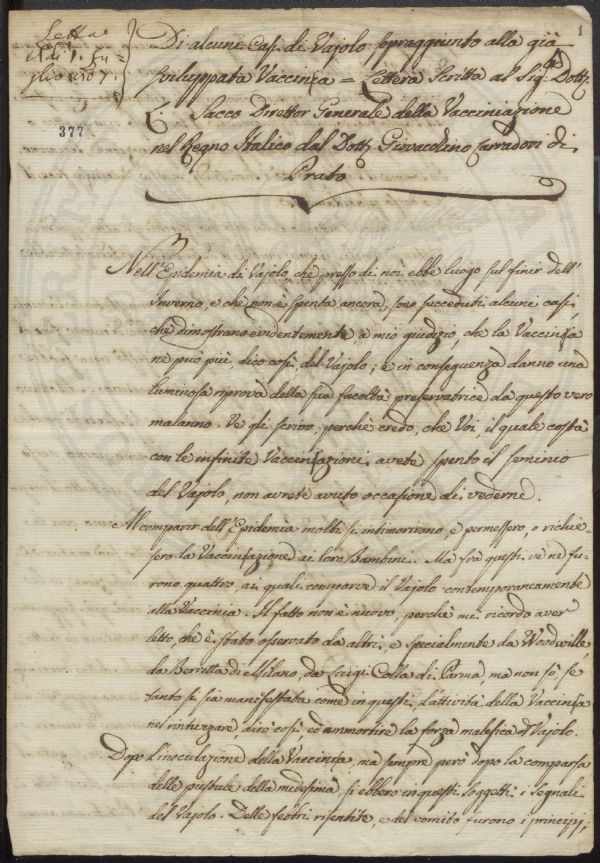 1
Letta
il dì 1. Lu-
glio 1807.
377
Di alcuni Casi di Vajolo sopraggiunto alla già
sviluppata Vaccinia = Lettera Scritta al Sig. Dott.
Sacco Direttor Generale della Vaccinazione
nel Regno Italico dal Dott. Giovacchino Carradori di
Prato
Nell'Epidemia di Vajolo, che presso di noi ebbe luogo sul finir dell'
Inverno, e che non è spenta ancora, sono succeduti alcuni casi,
che dimostrano evidentemente a mio giudizio, che la Vaccinia
ne può più, dico così, del Vajolo; e in conseguenza danno una
luminosa riprova della sua facoltà preservatrice da questo vero
malanno. Ve gli scrivo perchè credo, che Voi, il quale costà
con le infinite Vaccinazioni avete spento il seminio
del Vajolo, non avrete avuto occasione di vederne.
Al comparir dell'Epidemia molti si intimorirono, e permessero, o richie-
sero la Vaccinazione ai loro Bambini. Ma fra questi ve ne fu-
rono quattro, ai quali comparve il Vajolo contemporaneamente
alla Vaccinia. Il fatto non è nuovo, perchè mi ricordo aver
letto, che è stato osservato da altri, e specialmente da Woodwille
da Berretta di Milano, da Luigi Colla di Parma, ma non sò, se
tanto si sia manifestata come in questi l'attività della Vaccinia
nel rintuzzare, dirò così, ed ammortire la forza malefica del Vajolo.
Dopo l'inoculazione della Vaccinia, ma sempre però dopo la comparsa
delle pustule della medesima si ebbero in questi soggetti i segnali
del Vajolo. Delle febbri risentite, e del vomito furono i principj,